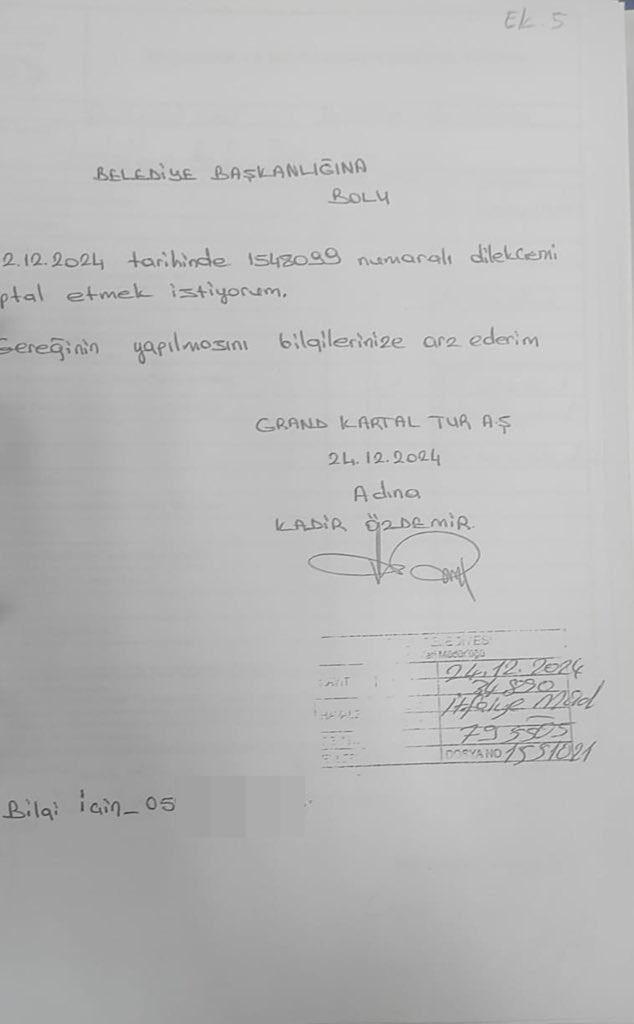 Ek. 5
BELEDİYE BAŞKANLIĞINA
BOLU
2.12.2024 tarihinde 1548099 numaralı dilekcemi
ptal etmek istiyorum.
Gereğinin yapılmasını bilgilerinize arz ederim
GRAND KARTAL TUR A.Ş
24.12.2024
Adına
KADİR ÖZDEMİR.
24.12.2024
34890
İtfaiye Müd
795505
DOSYA NO 1551021
Bilgi İçin_ 05